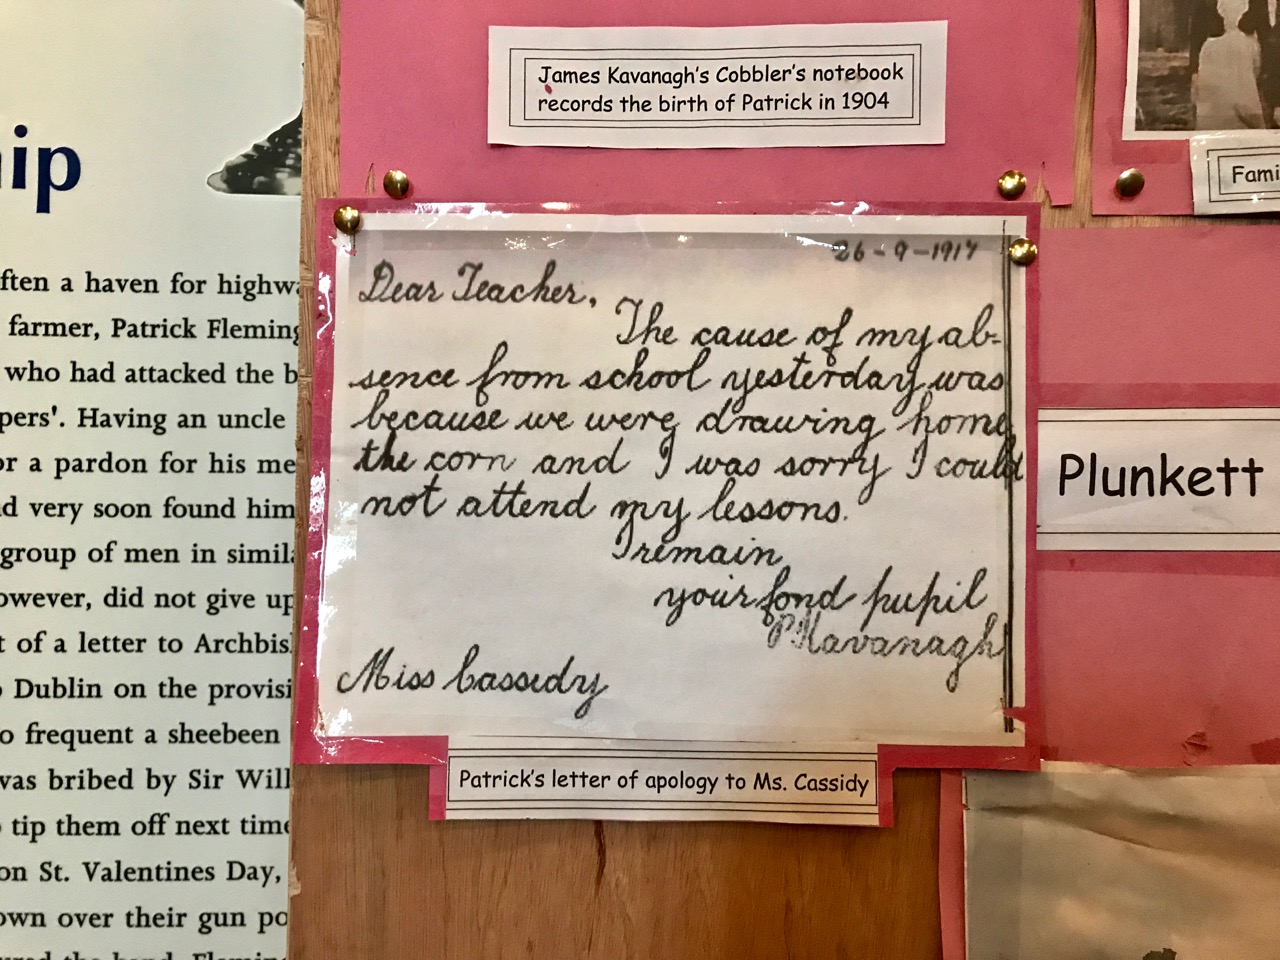 James Kavanagh's Cobbler's notebook
records the birth of Patrick in 1904
26-9-1917
Dear Teacher,
The cause of my ab-
sence from school yesterday was
because we were drawing home
the corn and I was sorry I could
not attend my lessons.
I remain
your fond pupil
P. Kavanagh
Miss Cassidy
Patrick's letter of apology to Ms. Cassidy
ip
ften a haven for highw
farmer, Patrick Fleming
who had attacked the b
pers'. Having an uncle
or a pardon for his me
d very soon found him
group of men in simila
owever, did not give up
t of a letter to Archbis
Dublin on the provisi
o frequent a sheebeen
was bribed by Sir Will
tip them off next time
on St. Valentines Day,
own over their gun po
ured the band. Fleming
Fami
Plunkett